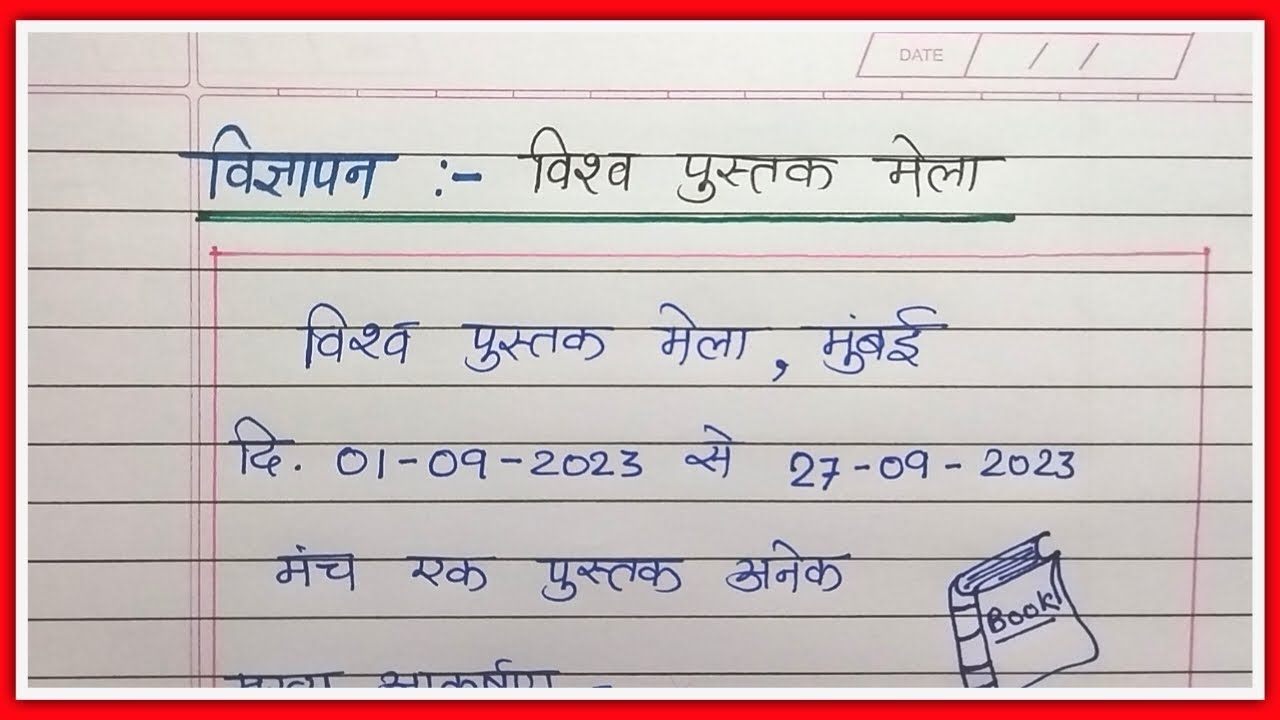 DATE / /
विज्ञापन :- विश्व पुस्तक मेला
विश्व पुस्तक मेला, मुंबई
दि. 01-09-2023 से 27-09-2023
मंच एक पुस्तक अनेक
BOOK